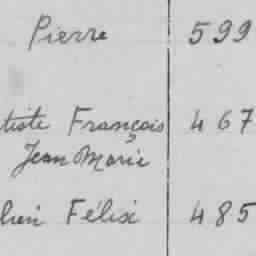 Pierre 599
tiste François 467
Jean Marie
lien Félix 485